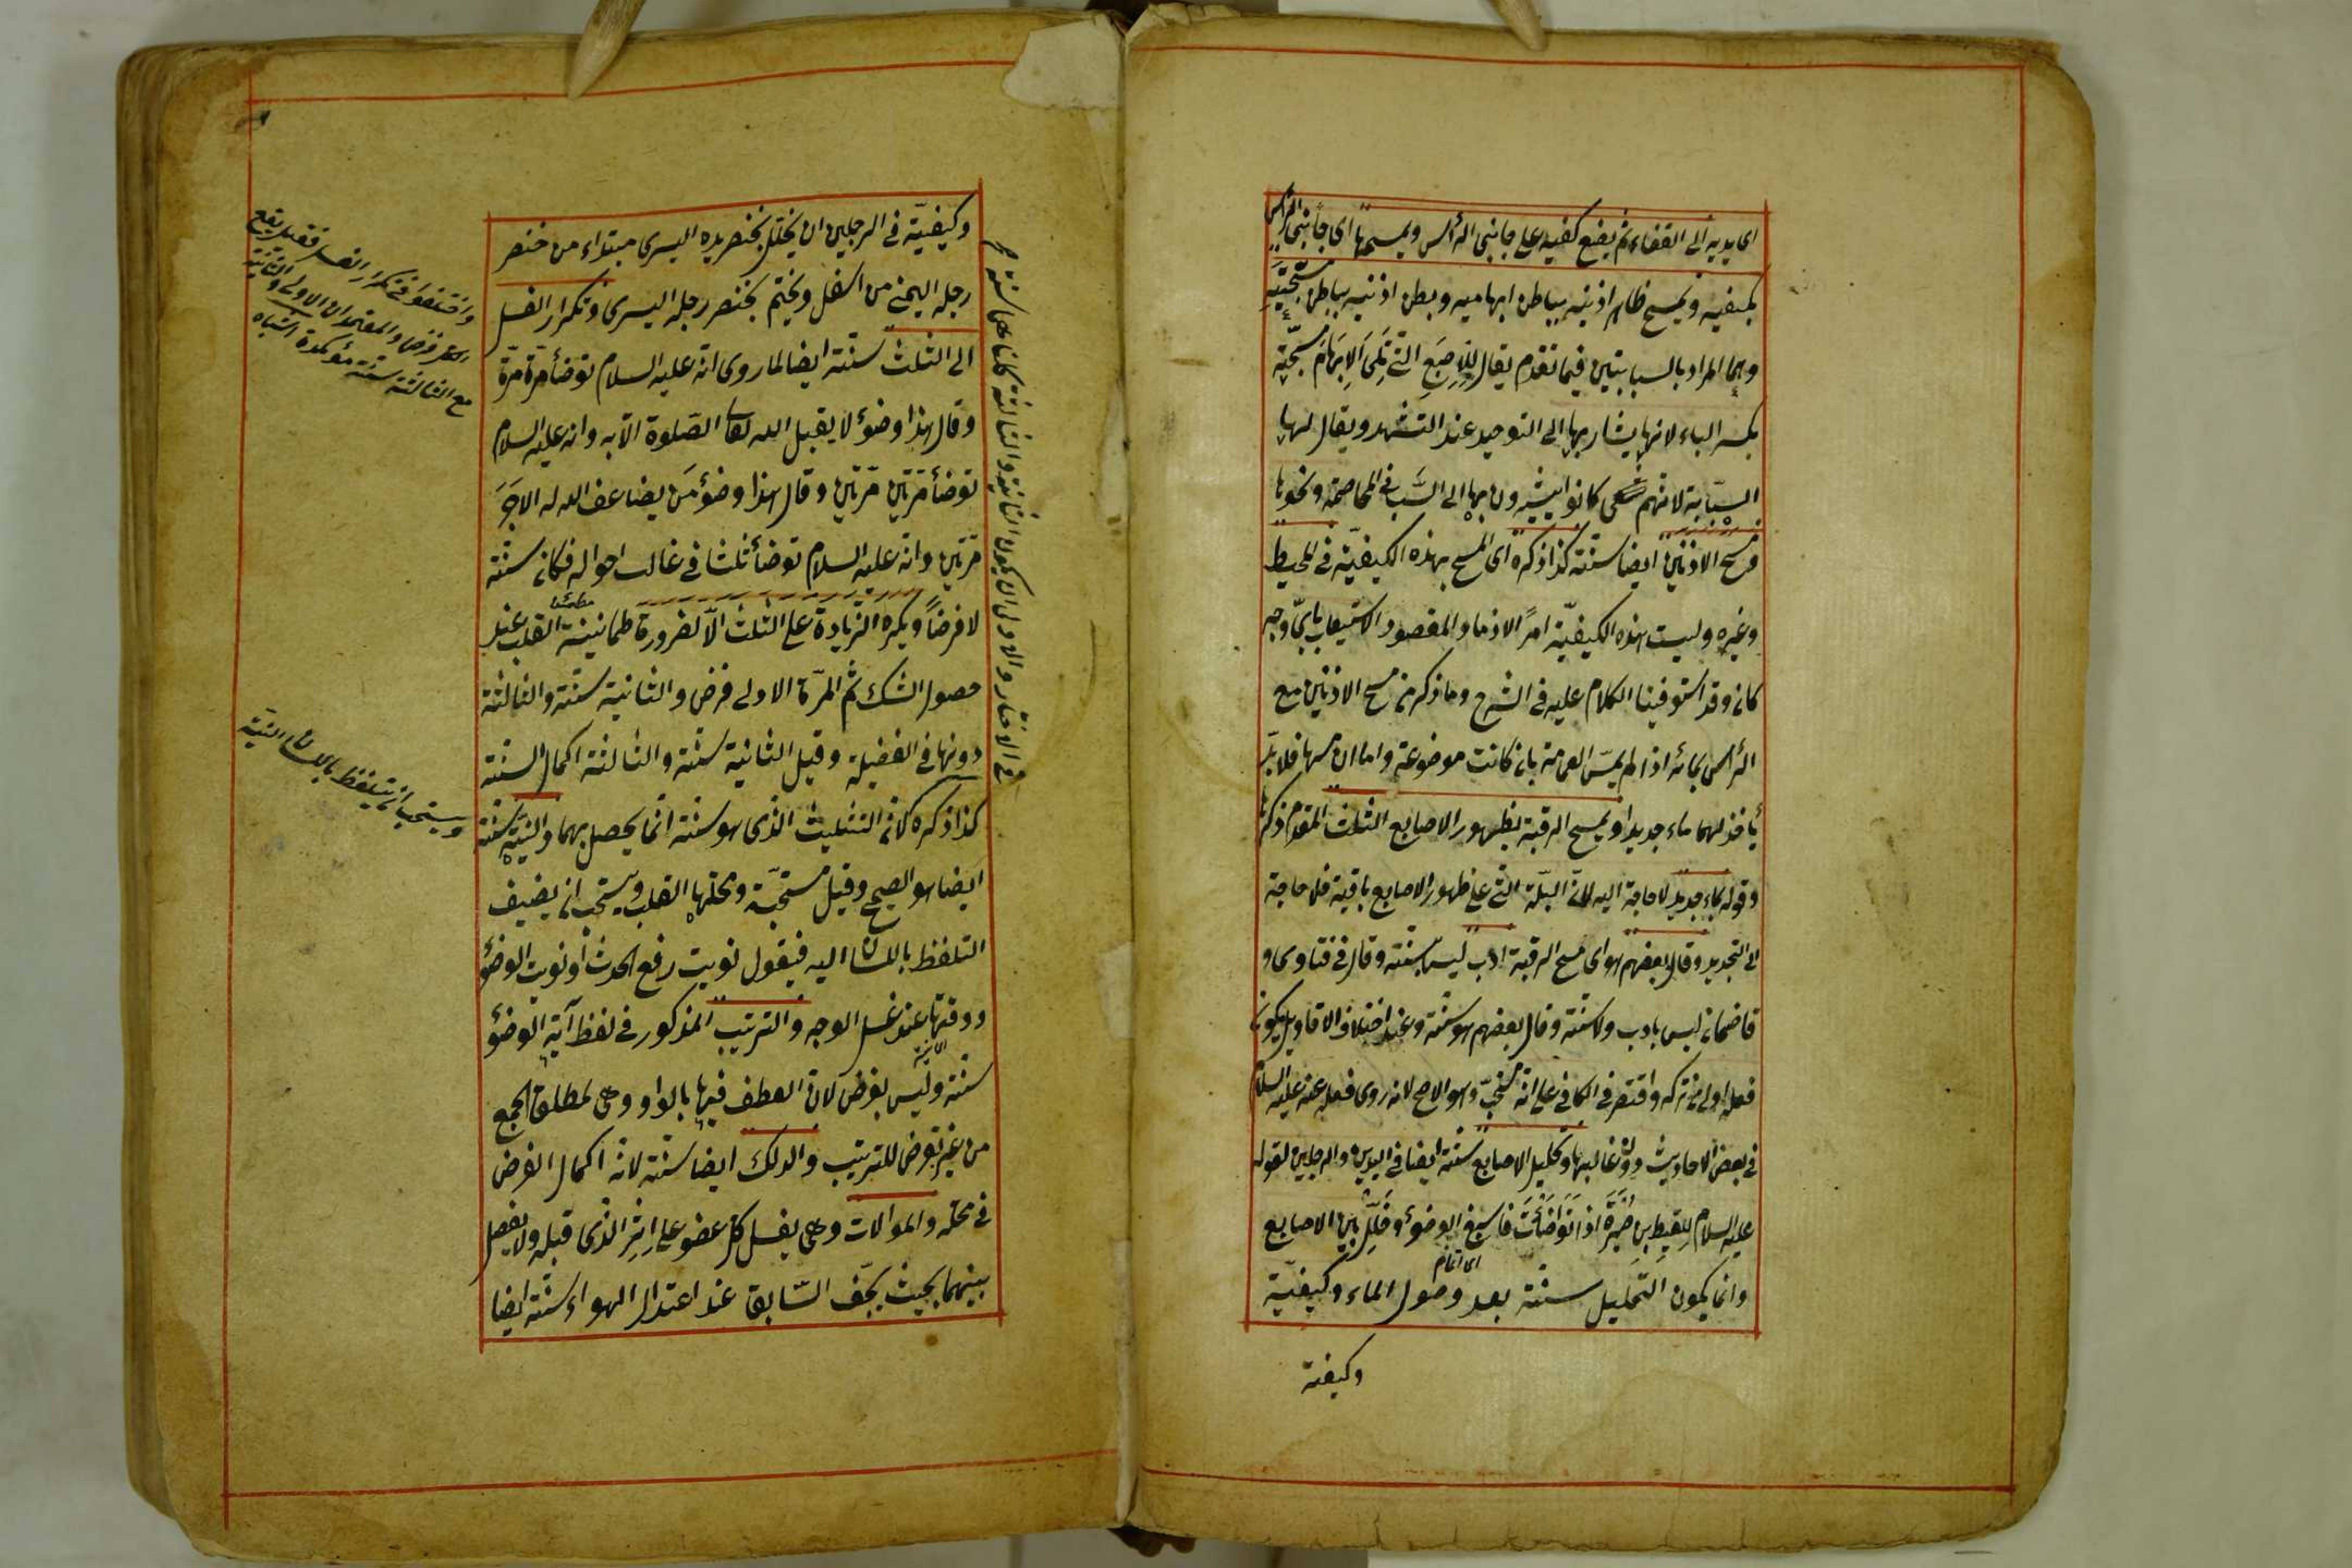 اى يديه الى القفاء ثم يضع كفيه على جانبى الرأس ويمسحها اى جانبى الرأس
بكفيه ويمسح ظاهر اذنيه بباطن ابهاميه وبطن اذنيه بباطن مسبّحتيه
وهما المراد بالسبابتين فيما تقدم يقال للاِصبَعِ التى تَلِى الاِبهَامَ مسبّحة
بكسر الباء لانها يشار بها الى التوحيد عند التشهد ويقال لها
السبّابة لانهم كانوا يشيرون بها الى السَّب فى المخاصمة ونحوها
ومسح الاذنين ايضا سنّة كذا ذكره اى المسح بهذه الكيفيّة فى المحيط
وغيره وليست هذه الكيفيّة امرًا لازما والمقصود الاستيعاب باىّ وجه
كان وقد استوفينا الكلام عليه فى الشرح وما ذكر من مسح الاذنين مع
الرأس بمائه اذا لم يمسّ العمامة بان كانت موضوعة واما ان مسها فلا بدّ
يأخذ لهما ماء جديدا ويمسح الرقبة بظهور الاصابع الثلث المقدم ذكرها
وقوله بماء جديد لا حاجة اليه لانّ البلّة التى على ظهور الاصابع باقية فلا حاجة
الى التجديد وقال بعضهم هو اى مسح الرقبة ادب ليس بسنّة وقال فى فتاوى و
قاضخان ليس بادب ولا سنّة وقال بعضهم هو سنّة وعند اختلاف الاقاويل يكون
فعله اولى من تركه واقتصر فى الكافى على انه مستحبّ وهو الاصح لانه روى فعله عنه عليه السلام
فى بعض الاحاديث دون غالبها وتخليل الاصابع سنّة ايضا فى اليدين والرجلين لقوله
عليه السلام لِلَقِيطِ بنِ صَبِرَة اذا تَوَضّأتَ فاسبغ الوضؤ وخَلِّل بين الاصابع
اى اتمام
وانما يكون التخليل سنّة بعد وصول الماء وكيفيّة
وكيفية
وكيفيّة فى الرجلين ان يخلّل بخنصر يده اليسرى مبتداء من خنصر
رجله اليمنى من اسفل ويختم بخنصر رجله اليسرى وتكرار الغسل
الى الثلث سنّة ايضا لما روى انّه عليه السلام توضأ مرّة مرّة
وقال هذا وضؤ لا يقبل الله تعالى الصّلوة الّا به وانه عليه السلام
توضأ مرّتين مرّتين وقال هذا وضؤ مَن يضاعف الله له الاجَرَ
مرّتين وانّه عليه السلام توضأ ثلثا فى غالب احواله فكان سنّة
لا فرضاً ويكره الزيادة على الثلث الّا لضرورة طمانينة القلب عند
مطمئنا
حصول الشك ثم المرّة الاولى فرض والثانية سنّة والثالثة
دونها فى الفضيلة وقيل الثانية سنّة والثالثة اكمال السنّة
كذا ذكره لانّ التثليث الذى هو سنّة انّما يحصل بهما والنيّة سنّة
ايضا هو الصحيح وقيل مستحبّة ومحلّها القلب ويستحب ان يضيف
التلفظ باللسان اليه فيقول نويت رفع الحدث او نويت الوضؤ
ووقتها عند غسل الوجه والترتيب المذكور فى لفظ آية الوضؤ
سنّة وليس بفرض لان العطف فيها بالواو وهى لمطلق الجمع
من غير تعرض للترتيب والدلك ايضا سنّة لانه اكمال الفرض
فى محلّه والموالات وهى يغسل كلّ عضو على اِثرِ الذى قبله ولا يفصل
بينهما بحيث يجّف السّابق عند اعتدال الهواء سنّة ايضا
واختلفوا فى تكرار الغسل فقيل
فرض والمعتمد ان الاولى والثانية
مع الثالثة سنّة مؤكدة اشباه
ويستحب ان يتلفظ باللسان النيّة